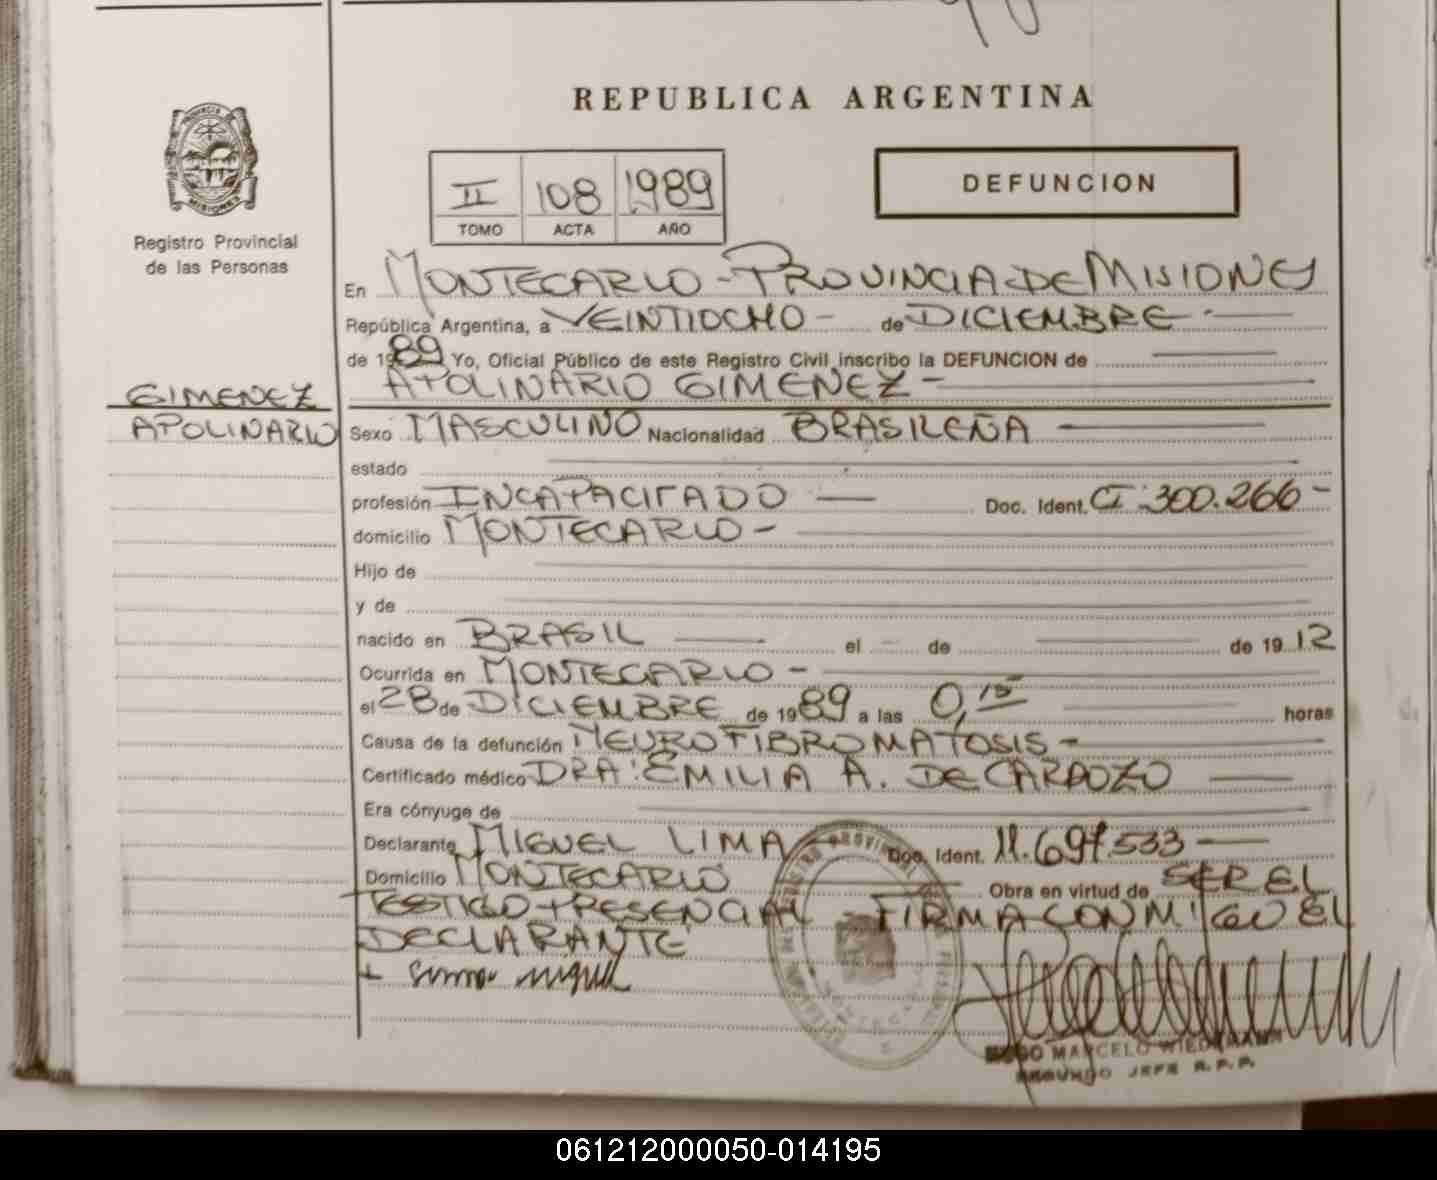 REPUBLICA ARGENTINA
PROVINCIA DE
MISIONES
Registro Provincial
de las Personas
II 108 1989
TOMO ACTA AÑO
DEFUNCION
En MONTECARLO - PROVINCIA DE MISIONES
República Argentina, a VEINTIOCHO - de DICIEMBRE
de 1989 Yo, Oficial Público de este Registro Civil inscribo la DEFUNCION de
APOLINARIO GIMENEZ -
GIMENEZ
APOLINARIO
Sexo MASCULINO Nacionalidad BRASILEÑA
estado
profesión INCAPACITADO — Doc. Ident. CI 300.266 -
domicilio MONTECARLO -
Hijo de
y de
nacido en BRASIL — el - de — de 1912
Ocurrida en MONTECARLO -
el 28 de DICIEMBRE de 1989 a las 0,15 horas
Causa de la defunción NEUROFIBROMATOSIS -
Certificado médico DRA: EMILIA A. DE CARDOZO
Era cónyuge de
Declarante MIGUEL LIMA Doc. Ident. 11.697.533
Domicilio MONTECARLO Obra en virtud de SER EL
TESTIGO PRESENCIAL - FIRMA CON MIGO EL
DECLARANTE
MARCELO WIEDEMANN
SEGUNDO JEFE R.P.P.
061212000050-014195